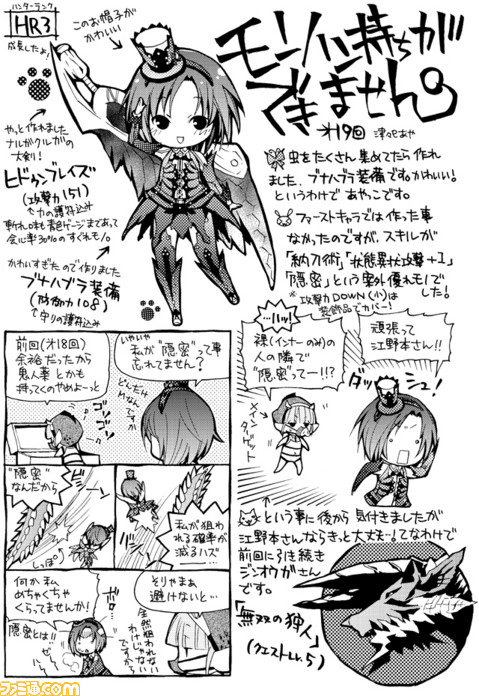 ハンターランク
HR3
成長したよ!
このお帽子が
かわいい
モンハン持ちが
できません。
第19回
津呂あや
やっと作れました
ナルガクルガの
大剣!
ヒドゥンブレイズ
(攻撃力151)
力の護符込み
斬れ味も青色ゲージまであって
会心率30%のすぐれモノ。
かわいすぎたので作りました
ブナハブラ装備
(防御力108)
守りの護符込み
虫をたくさん集めてたら作れ
ました、ブナハブラ装備ですかわいい!
というわけであやこです。
ファーストキャラでは作った事
なかったのですが、スキルが
「納刀術」「状態異状攻撃+1」
「隠密」という案外優れモノで
した。
※攻撃力DOWN(小)は
装飾品でカバー!
頑張って
江野本さん!!
…ハッ!
裸(インナーのみ)の
人の隣で
"隠密"ってー!!?
ダッシュ!
メインターゲット
という事に後から気付きましたが
江野本さんならきっと大丈夫…!てなわけで
前回に引き続き
ジンオウガさん
です。
「無双の狩人」
(クエストLv.5)
前回(第18回)
余裕だったから
鬼人薬とかも
持ってくのやめよーっと
ゴソゴソ
いやいや
私が"隠密"って事
忘れてません?
どんだけ
Mなんですか
"隠密"
なんだから
しっぽ
私が狙わ
れる確率が
減るハズ…
何か私
めちゃくちゃ
くらってませんか!
隠密とは!!
そりゃまぁ
避けないと…
全然狙われない
わけじゃない
ですから
ファミ通.com